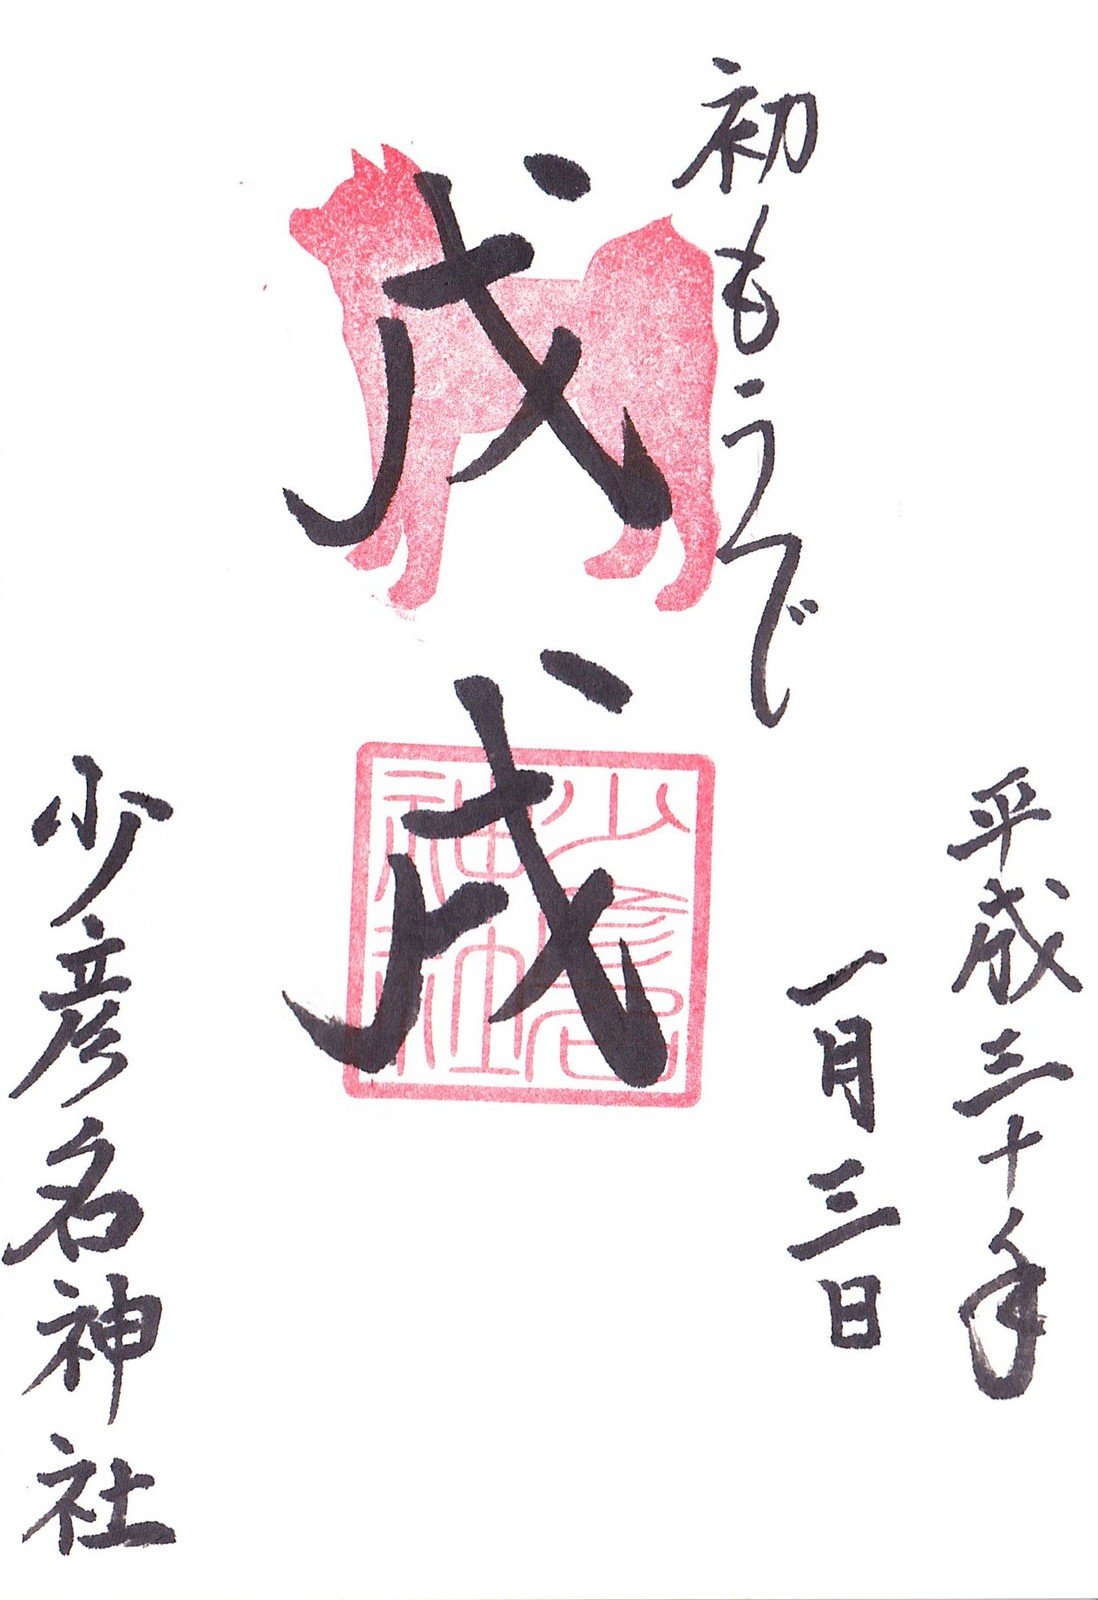 平成三十年
一月三日
初もうで
戊戌
少彦名
神社
少彦名神社